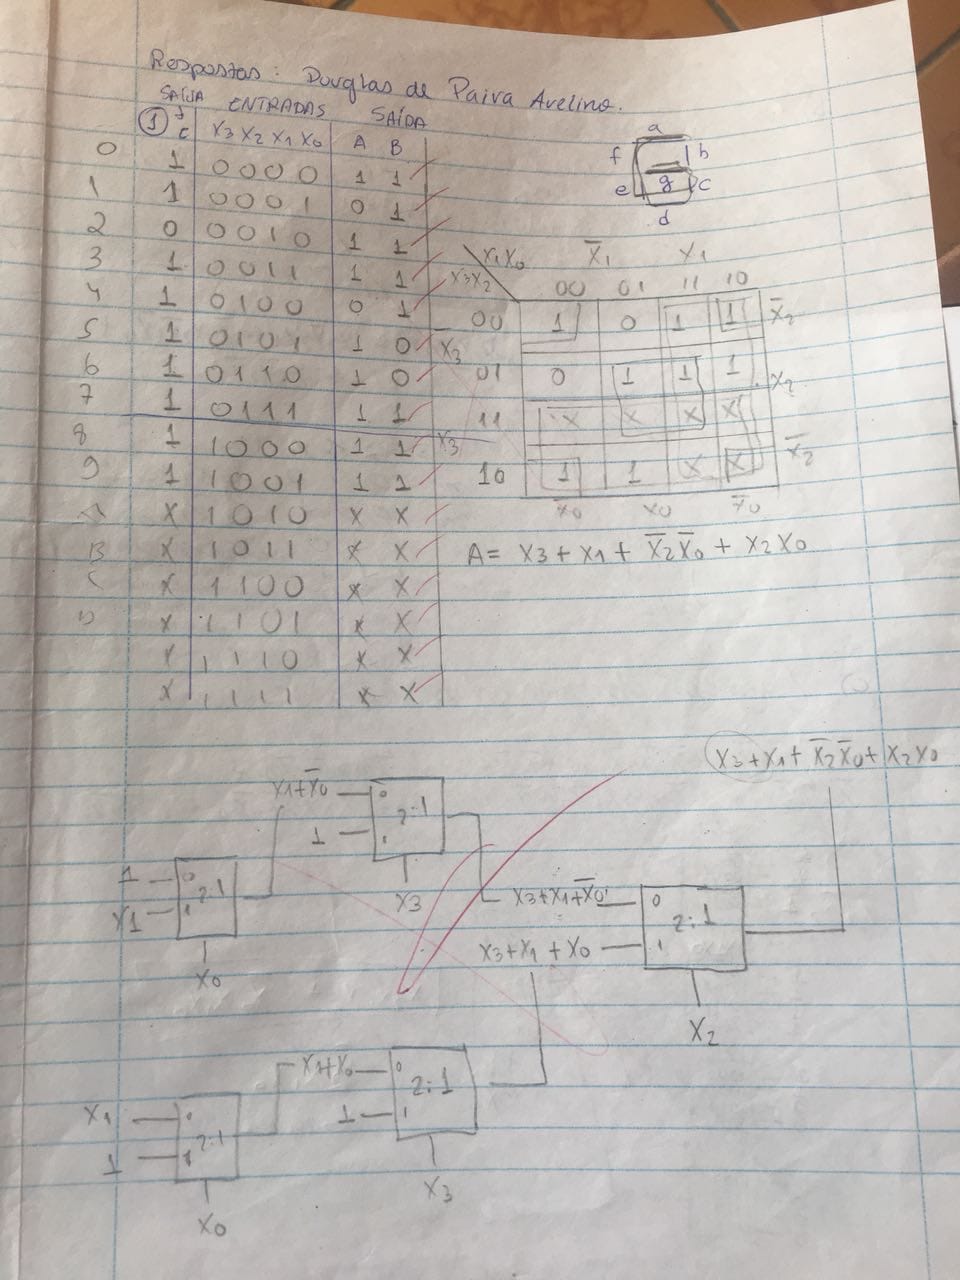 Respostas: Douglas de Paiva Avelino.
SAÍDA ENTRADAS SAÍDA
1 C X3 X2 X1 X0 A B
0 1 0000 1 1
1 1 0001 0 1
2 0 0010 1 1
3 1 0011 1 1
4 1 0100 0 1
5 1 0101 1 0
6 1 0110 1 0
7 1 0111 1 1
8 1 1000 1 1
9 1 1001 1 1
A X 1010 X X
B X 1011 X X
C X 1100 X X
D X 1101 X X
X 1110 X X
X 1111 X X
a
f b
g
e c
d
X1X0 X̅1 X1
X3X2 00 01 11 10
00 1 0 1 1 X̅2
X̅3
01 0 1 1 1 X2
11 X X X X
X3
10 1 1 X X X̅2
X̅0 X0 X̅0
A = X3 + X1 + X̅2X̅0 + X2X0
X3+X1+X̅2X̅0+X2X0
X1+X̅0 0
2:1
1 1
X3
1 0
2:1
X1 1
X0
X3+X1+X̅0 0
2:1
X3+X1+X0 1
X2
X1+X0 0
2:1
1 1
X3
X1 0
2:1
1 1
X0